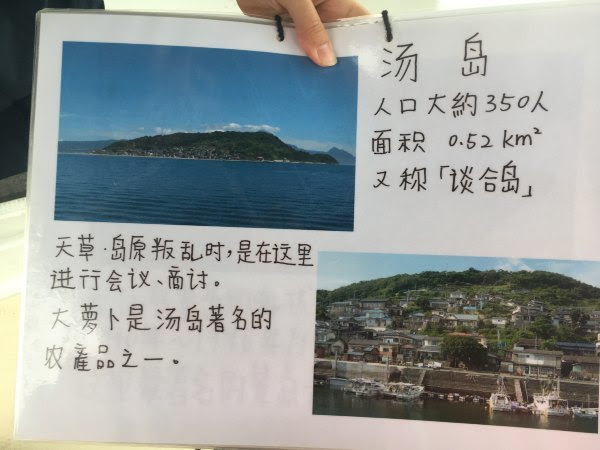 汤 岛
人口大約350人
面积 0.52 km²
又称「谈合岛」
天草·岛原叛乱时,是在这里
进行会议、商讨。
大萝卜是汤岛著名的
农産品之一。